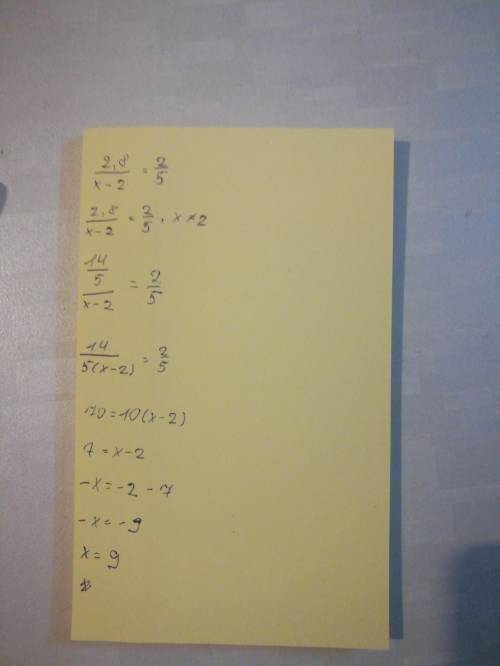 2,8/(x-2) = 2/5
2,8/(x-2) = 2/5, x≠2
(14/5)/(x-2) = 2/5
14/(5(x-2)) = 2/5
70=10(x-2)
7=x-2
-x=-2-7
-x=-9
x=9